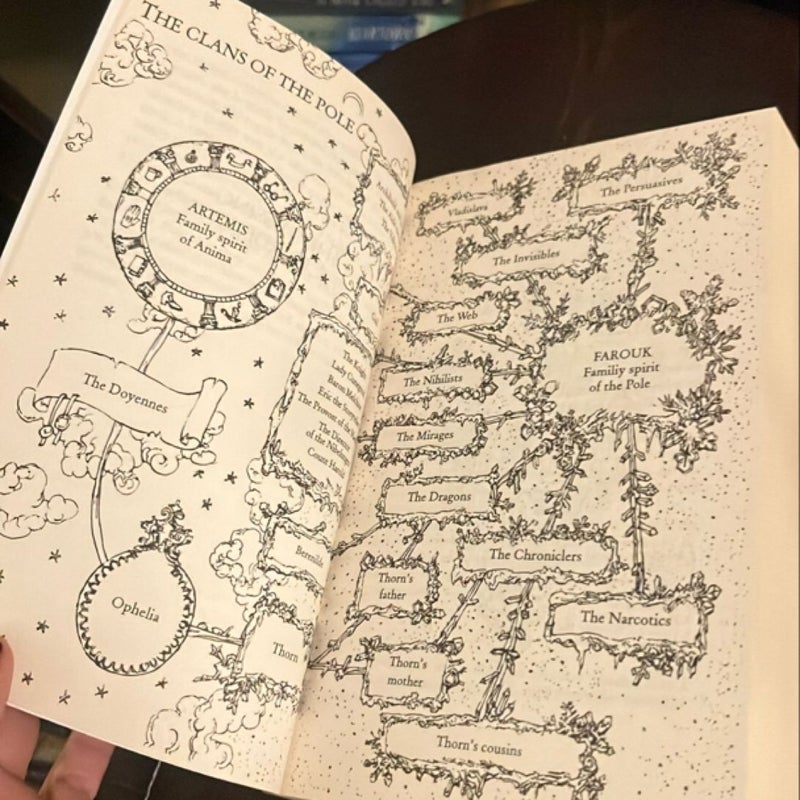 THE CLANS OF THE POLE
ARTEMIS
Family spirit
of Anima
The Doyennes
Ophelia
The
Lady
Baron
Eric the
The Provost of the
The
of the
Count
Thorn
Vladislava
The Persuasives
The Invisibles
The Web
FAROUK
Familiy spirit
of the Pole
The Nihilists
The Mirages
The Dragons
The Chroniclers
Thorn's
father
The Narcotics
Thorn's
mother
Thorn's cousins